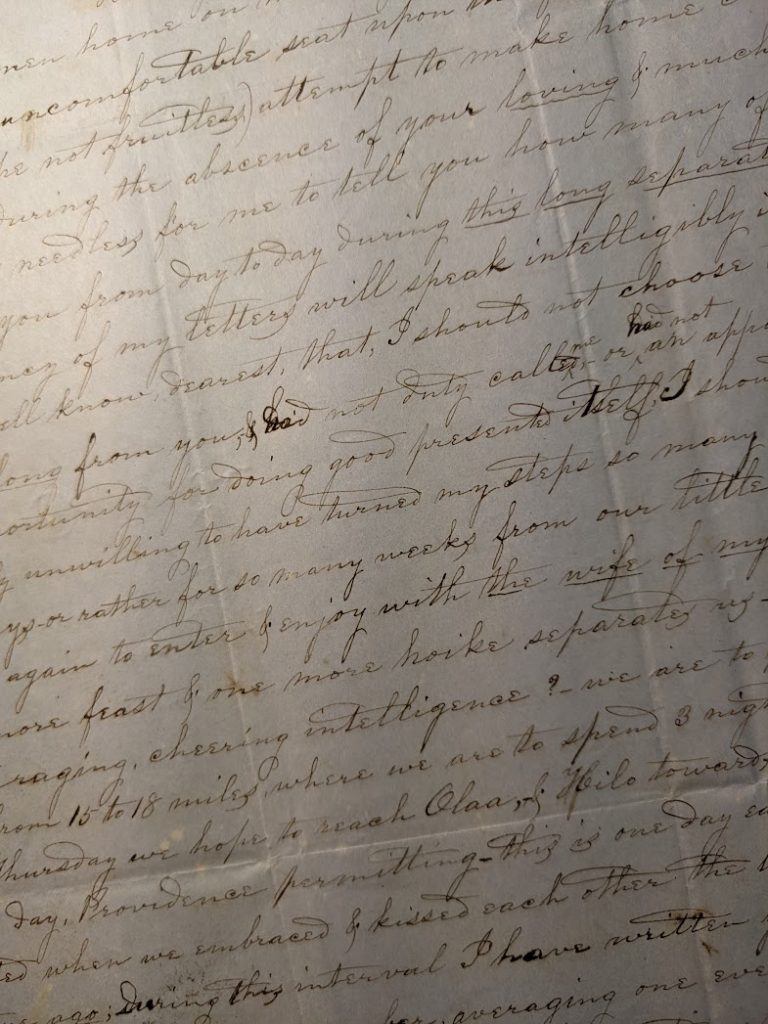 men home on
uncomfortable seat upon
not fruitless) attempt to make home
during the abscence of your loving & much
needless for me to tell you how many of
you from day to day during this long separat
ncy of my letters will speak intelligibly
ell know, dearest, that, I should not choose
me had not
long from you, & had not duty called or an oppo
ortunity for doing good presented itself, I shou
y unwilling to have turned my steps so many
ys- or rather for so many weeks from our little
again to enter & enjoy with the wife of my
more feast & one more hoike separates us-
raging, cheering intelligence?- we are to
from 15 to 18 miles, where we are to spend 3 nigh
Thursday we hope to reach Olaa,-& Hilo toward
day, Providence permitting- this is one day ea
ted when we embraced & kissed each other the
ago; during this interval I have written
ber, averaging one eve